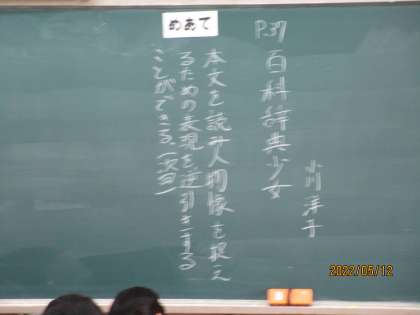 P.37
百科辞典少女
小川 洋子
めあて
本文を読み人物像を捉え
るための表現を逆引きする
ことができる。
2022/05/12